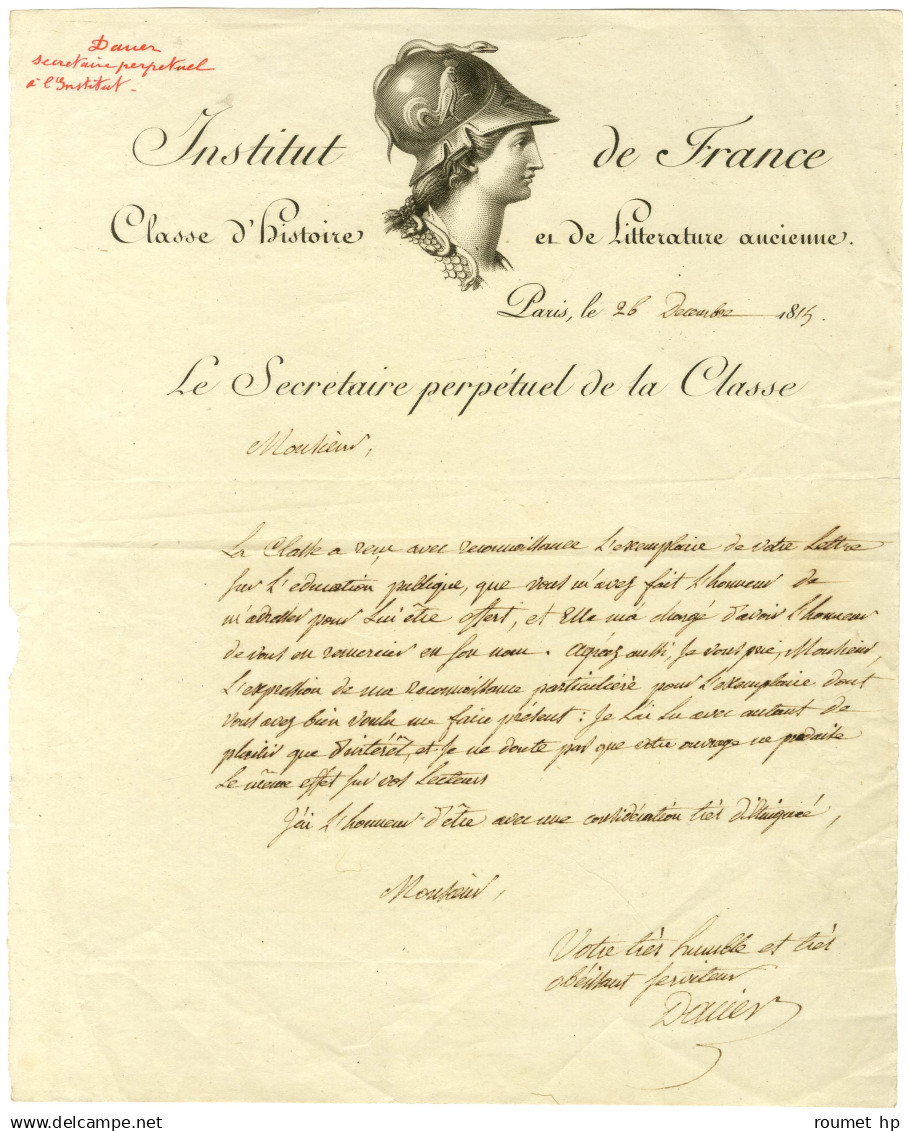 Dacier
secretaire perpetuel
à l'Institut.
Institut de France
Classe d'histoire et de Litterature ancienne.
Paris, le 26 Decembre 1815.
Le Secretaire perpétuel de la Classe
Monsieur,
La Classe a reçu avec reconnoissance L'exemplaire de votre Lettre
sur L'education publique, que vous m'avez fait L'honneur de
m'adresser pour Lui être offert, et Elle m'a chargé d'avoir L'honneur
de vous en remercier en son nom. Agréez aussi, je vous prie, Monsieur,
L'expression de ma reconnoissance particulière pour L'exemplaire dont
vous avez bien voulu me faire présent : je L'ai Lu avec autant de
plaisir que d'intérêt, et je ne doute pas que votre ouvrage ne produise
Le même effet sur vos Lecteurs
J'ai L'honneur d'être avec une considération très distinguée,
Monsieur,
Votre très humble et très
obéissant serviteur
Dacier
roumet hp